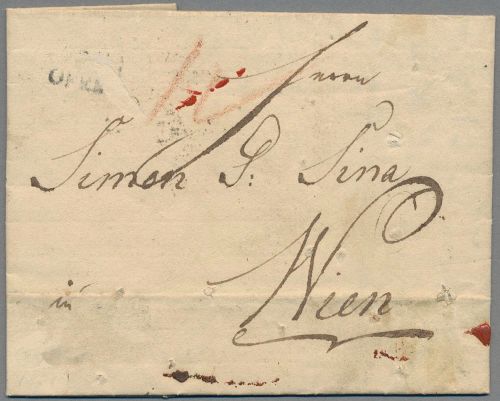 OFEN
Herrn
Simon G: Sina
in
Wien